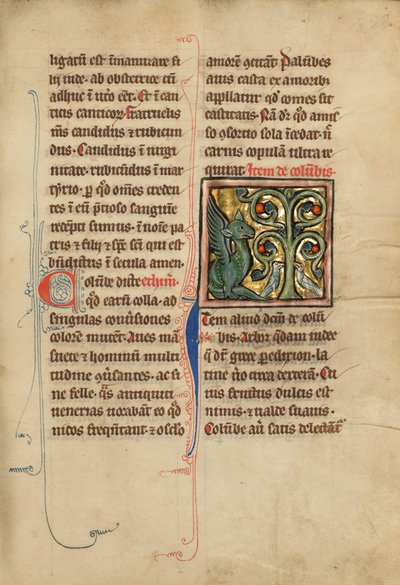 ligatū est ī manu rare fi
lij iude · ab obstetrice cū
adhuc ī ut̄o eēt · Et ī can
ticis canticoꝝ · fratruelis
m̄s candidus ⁊ rubicun
dus · Candidus ī uirgi
nitate · rubicūdus ī mar
tyrio · ꝑ qd̓ om̄es creden
tes ī eū p̄tioso sanguine
recepti sumus · ī noīe pa
tris ⁊ filij ⁊ sp̄c sc̄i qui est
bn̄dictus ī secula amen ·
Colūbe dicte ethim̄ ·
qd̓ earū colla · ad
singulas conū̓siones
colorē mutent · Aues mā
suete ⁊ hominū multi
tudine ꝯū̓santes · ac si
ne felle · qͣs antiqui
uenerias uocabāt eo qd̓
nidos freq̄ntant · ⁊ osclo
amorē ꝯcitāt · Palūbes
auis casta ex moribꝰ
appllatur qd̓ comes sit
castitatis · Nā dr̄ qd̓ amis
so ꝯsortio sola īcedat · n̄
carnis copulā ultra re
quirat · Item de colūbis ·
Item aliud dc̄m de colū
bis · Arbor q̄dam inde
ē q̄ dr̄ grece peridixion · la
tine u̓o circa dexterā · Cu
ius fructus dulcis est
nimis · ⁊ ualde suauis ·
Colūbe aū satis delectāt̓